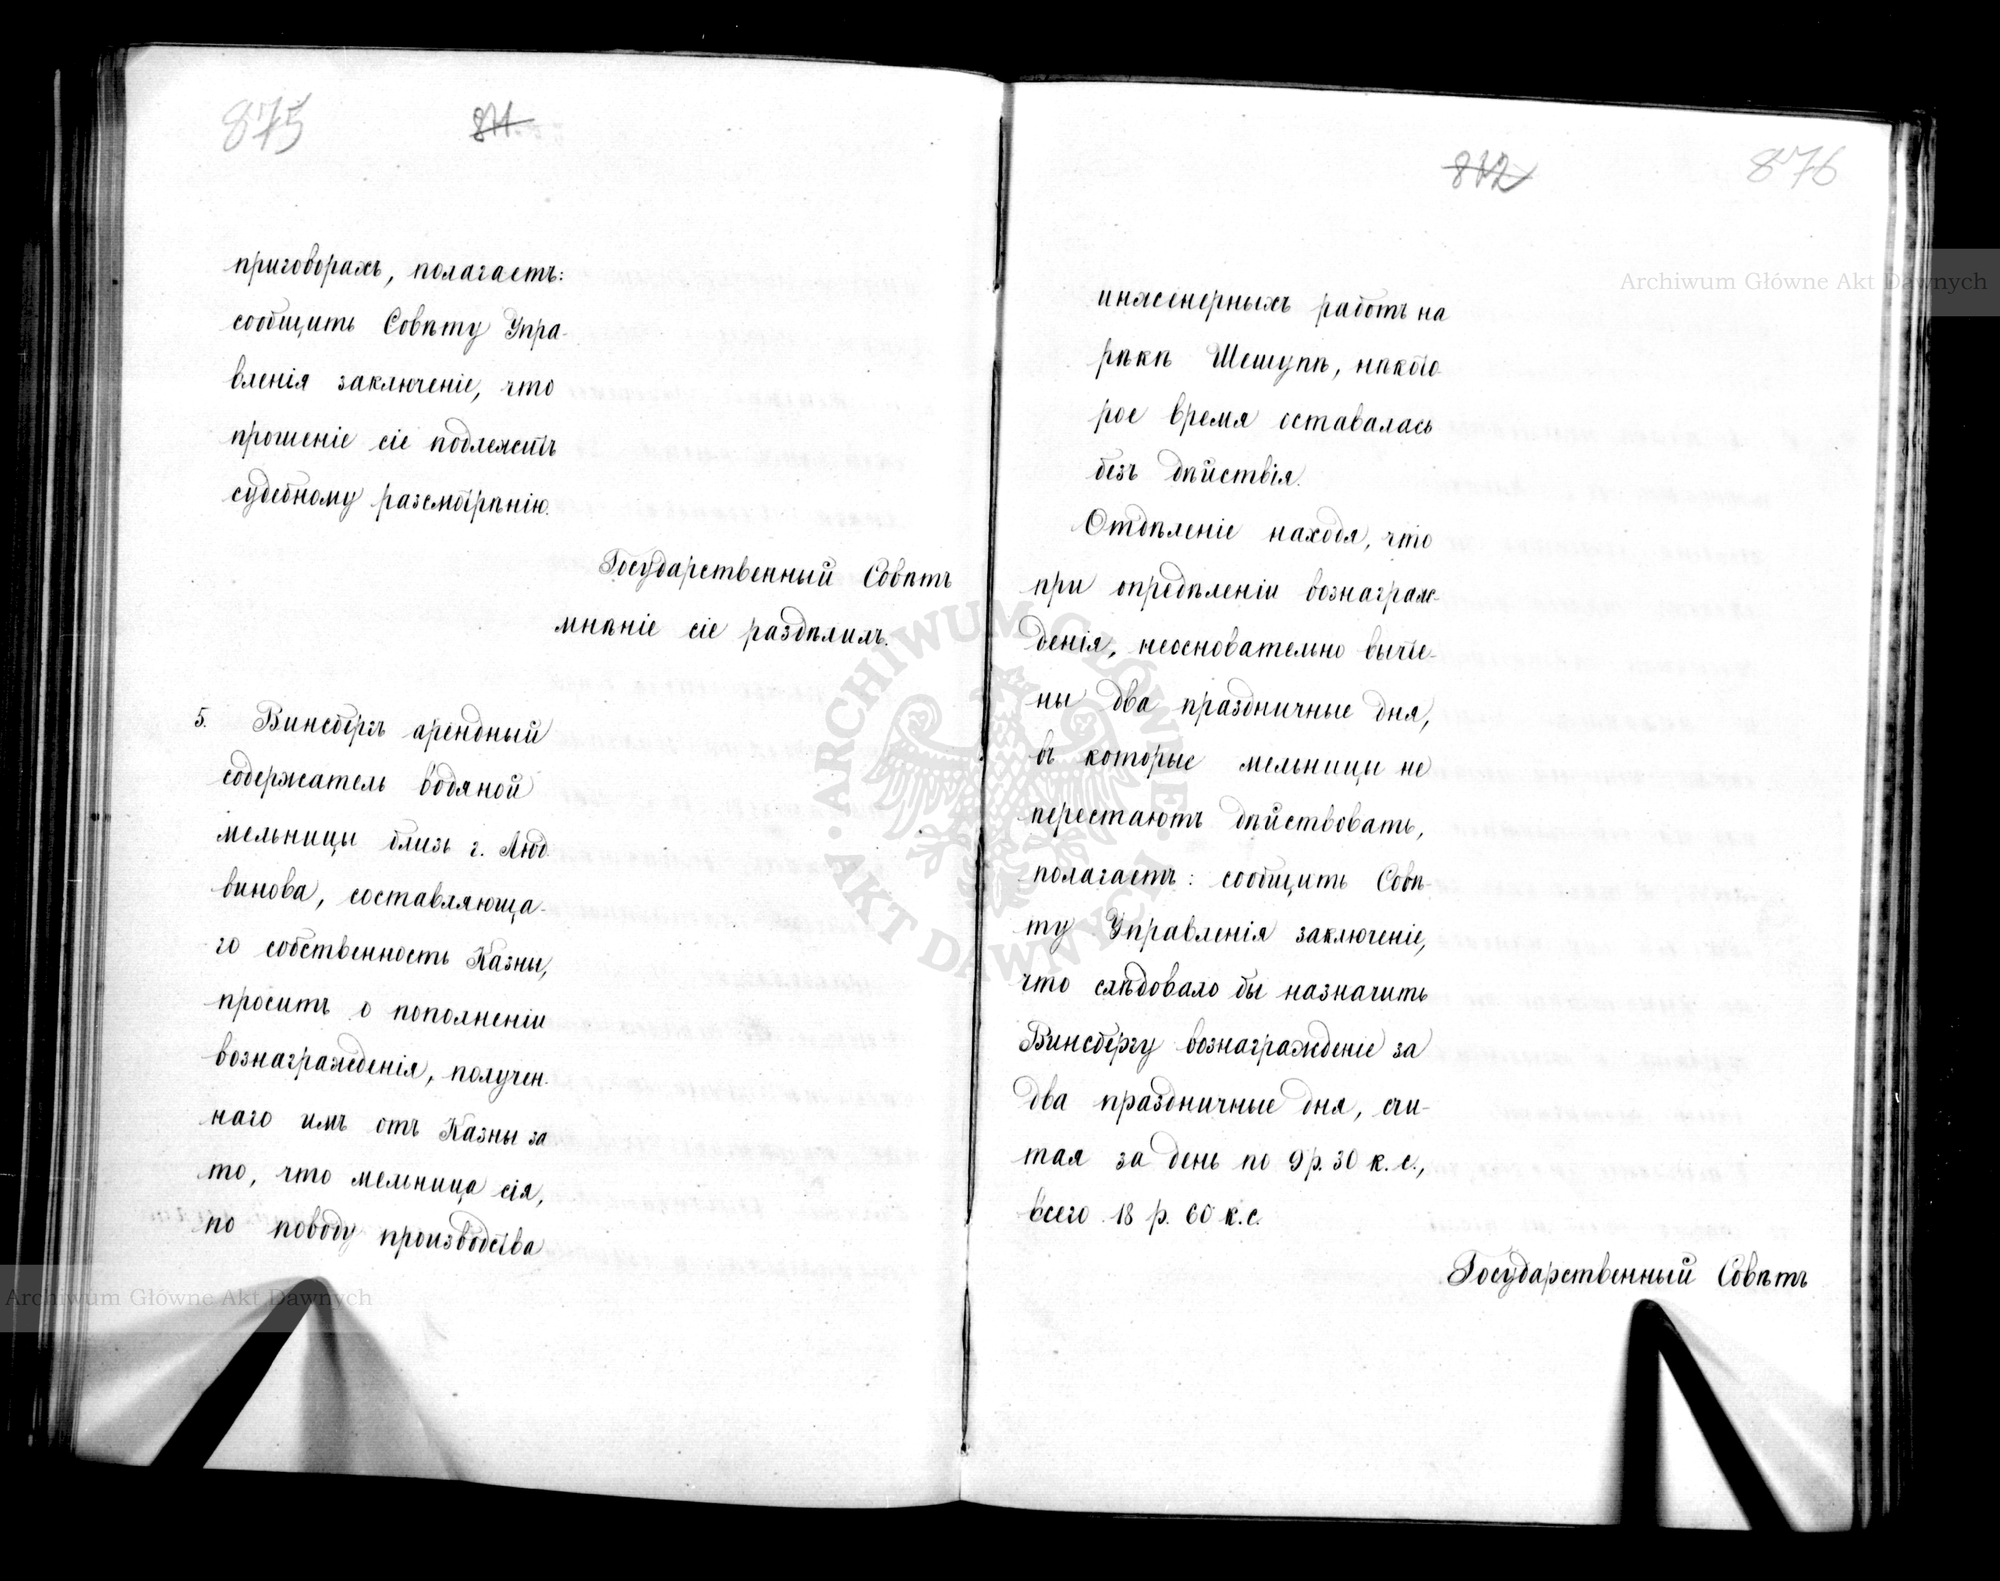 875
871.
приговорахъ, полагаетъ:
сообщить Совѣту Упра-
вленія заключеніе, что
прошеніе сіе подлежитъ
судебному разсмотрѣнію.
Государственный Совѣтъ
мнѣніе сіе раздѣлилъ.
5. Винсбергъ арендный
содержатель водяной
мельницы близь г. Люд
винова, составляюща-
го собственность Казны,
проситъ о пополненіи
вознагражденія, получен-
наго имъ отъ Казны за
то, что мельница сія,
по поводу производства
812
876
инженерныхъ работъ на
рѣкѣ Шешупѣ, нѣкото
рое время оставалась
безъ дѣйствія.
Отдѣленіе находя, что
при опредѣленіи вознаграж-
денія, неосновательно вычте-
ны два праздничные дня,
въ которые мельницы не
перестаютъ дѣйствовать,
полагаетъ: сообщить Совѣ-
ту Управленія заключеніе,
что слѣдовало бы назначить
Винсбергу вознагражденіе за
два праздничные дня, счи-
тая за день по 9 р. 30 к. с.,
всего 18 р. 60 к. с.
Государственный Совѣтъ
Archiwum Główne Akt Dawnych
Archiwum Główne Akt Dawnych
ARCHIWUM GŁÓWNE · AKT DAWNYCH ·